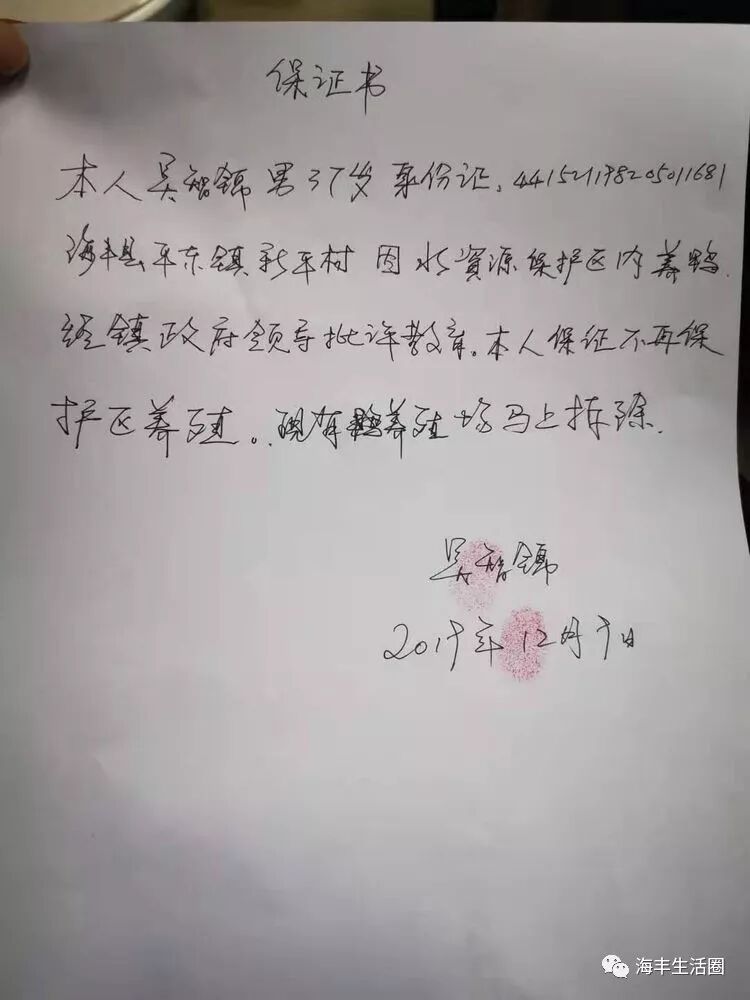 保证书
本人吴智锦男37岁身份证,441521198205011681
海丰县平东镇新平村 因水資源保护区内养鸭.
经镇政府领导批评教育。本人保证不再保
护区养殖。现有养殖场马上拆除.
吴智锦
2019年12月9日
海丰生活圈